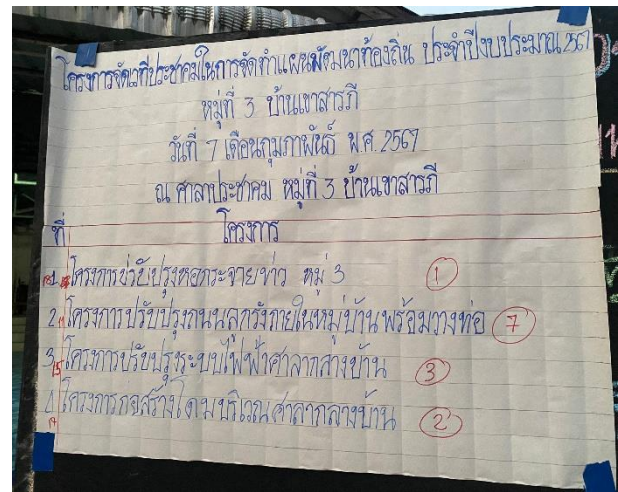 โครงการจัดเวทีประชาคมในการจัดทำแผนพัฒนาท้องถิ่น ประจำปีงบประมาณ 2567
หมู่ที่ 3 บ้านเขาสารภี
วันที่ 7 เดือนกุมภาพันธ์ พ.ศ. 2567
ณ ศาลาประชาคม หมู่ที่ 3 บ้านเขาสารภี
ที่ โครงการ
1. โครงการปรับปรุงหอกระจายข่าว หมู่ 3 1
2. โครงการปรับปรุงถนนลูกรังภายในหมู่บ้านพร้อมวางท่อ 7
3. โครงการปรับปรุงระบบไฟฟ้าศาลากลางบ้าน 3
4 โครงการก่อสร้างโดมบริเวณศาลากลางบ้าน 2